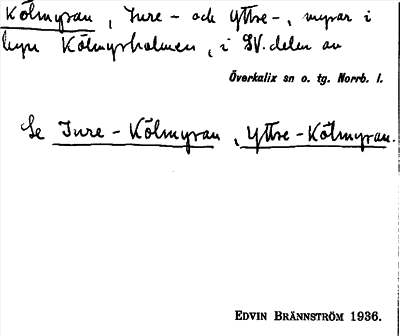 Kölmyran, Inre- och Yttre-, myrar i
byn Kölmyrholmen, i SV. delen av
Överkalix sn o. tg. Norrb. l.
Se Inre-Kölmyran, Yttre-Kölmyran.
EDVIN BRÄNNSTRÖM 1936.